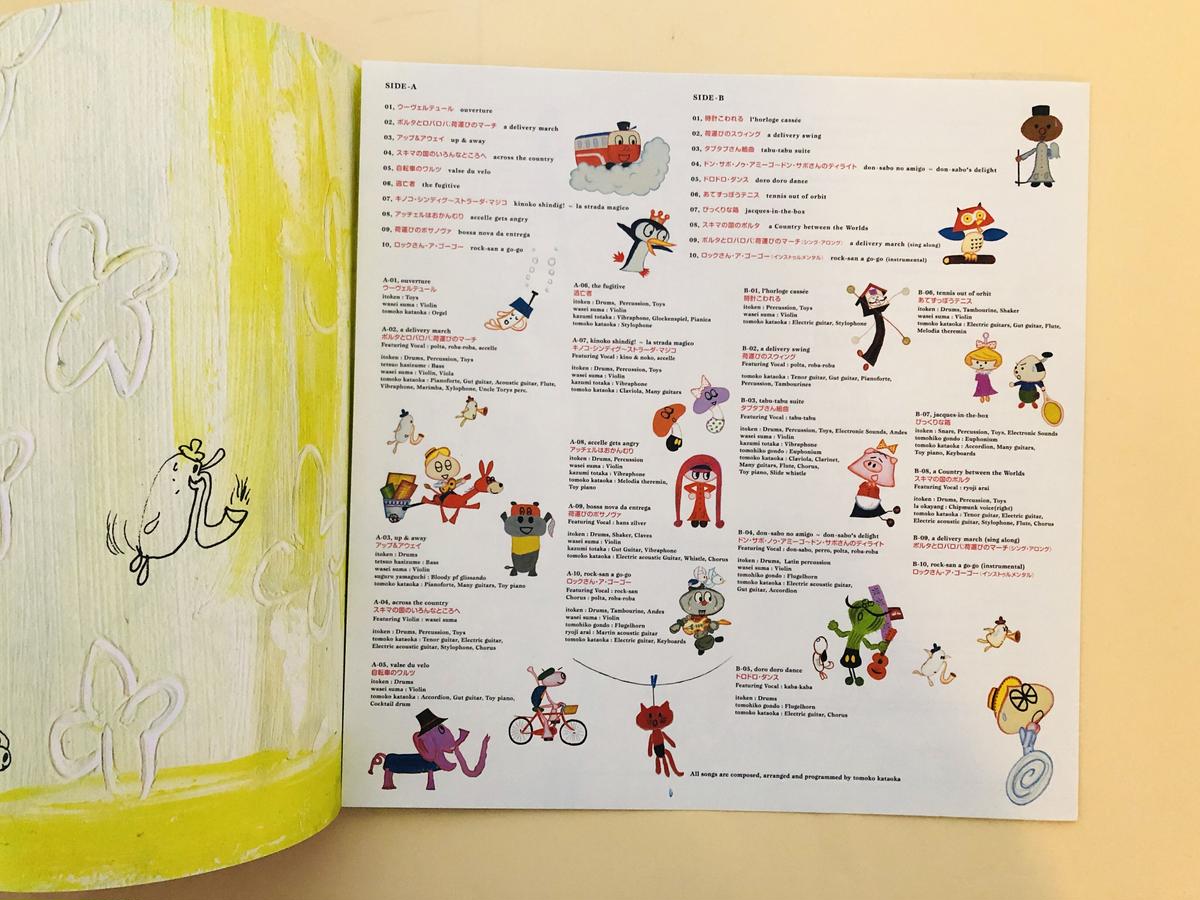 SIDE-A
01, ウーヴェルテュール ouverture
02, ポルタとロバロバ:荷運びのマーチ a delivery march
03, アップ&アウェイ up & away
04, スキマの国のいろんなところへ across the country
05, 自転車のワルツ valse du velo
06, 逃亡者 the fugitive
07, キノコ・シンディグ〜ストラーダ・マジコ kinoko shindig! ~ la strada magico
08, アッチェルはおかんむり accelle gets angry
09, 荷運びのボサノヴァ bossa nova da entrega
10, ロックさん・ア・ゴーゴー rock-san a go-go
SIDE-B
01, 時計こわれる l'horloge cassée
02, 荷運びのスウィング a delivery swing
03, タブタブさん組曲 tabu-tabu suite
04, ドン・サボ・ノゥ・アミーゴ〜ドン・サボさんのディライト don-sabo no amigo ~ don-sabo's delight
05, ドロドロ・ダンス doro doro dance
06, あてずっぽうテニス tennis out of orbit
07, びっくりな箱 jacques-in-the-box
08, スキマの国のポルタ a Country between the Worlds
09, ポルタとロバロバ:荷運びのマーチ(シング・アロング) a delivery march (sing along)
10, ロックさん・ア・ゴーゴー(インストゥルメンタル) rock-san a go-go (instrumental)
A-01, ouverture
ウーヴェルテュール
itoken : Toys
wasei suma : Violin
tomoko kataoka : Orgel
A-02, a delivery march
ポルタとロバロバ:荷運びのマーチ
Featuring Vocal : polta, roba-roba, accelle
itoken : Drums, Percussion, Toys
tetsuo hasizume : Bass
wasei suma : Violin, Viola
tomoko kataoka : Pianoforte, Gut guitar, Acoustic guitar, Flute,
Vibraphone, Marimba, Xylophone, Uncle Torys perc.
A-03, up & away
アップ&アウェイ
itoken : Drums
tetsuo hasizume : Bass
wasei suma : Violin
suguru yamaguchi : Bloody pf glissando
tomoko kataoka : Pianoforte, Many guitars, Toy piano
A-04, across the country
スキマの国のいろんなところへ
Featuring Violin : wasei suma
itoken : Drums, Percussion, Toys
tomoko kataoka : Tenor guitar, Electric guitar,
Electric acoustic guitar, Stylophone, Chorus
A-05, valse du velo
自転車のワルツ
itoken : Drums
wasei suma : Violin
tomoko kataoka : Accordion, Gut guitar, Toy piano,
Cocktail drum
A-06, the fugitive
逃亡者
itoken : Drums, Percussion, Toys
wasei suma : Violin
kazumi totaka : Vibraphone, Glockenspiel, Pianica
tomoko kataoka : Stylophone
A-07, kinoko shindig! ~ la strada magico
キノコ・シンディグ〜ストラーダ・マジコ
Featuring Vocal : kino & noko, accelle
itoken : Drums, Percussion, Toys
wasei suma : Violin
kazumi totaka : Vibraphone
tomoko kataoka : Claviola, Many guitars
A-08, accelle gets angry
アッチェルはおかんむり
itoken : Drums, Percussion
wasei suma : Violin
kazumi totaka : Vibraphone
tomoko kataoka : Melodia theremin,
Toy piano
A-09, bossa nova da entrega
荷運びのボサノヴァ
Featuring Vocal : hans zilver
itoken : Drums, Shaker, Claves
wasei suma : Violin
kazumi totaka : Gut Guitar, Vibraphone
tomoko kataoka : Electric acoustic Guitar, Whistle, Chorus
A-10, rock-san a go-go
ロックさん・ア・ゴーゴー
Featuring Vocal : rock-san
Chorus : polta, roba-roba
itoken : Drums, Tambourine, Andes
wasei suma : Violin
tomohiko gondo : Flugelhorn
ryoji arai : Martin acoustic guitar
tomoko kataoka : Electric guitar, Keyboards
B-01, l'horloge cassée
時計こわれる
itoken : Percussion, Toys
wasei suma : Violin
tomoko kataoka : Electric guitar, Stylophone
B-02, a delivery swing
荷運びのスウィング
Featuring Vocal : polta, roba-roba
tomoko kataoka : Tenor guitar, Gut guitar, Pianoforte,
Percussion, Tambourines
B-03, tabu-tabu suite
タブタブさん組曲
Featuring Vocal : tabu-tabu
itoken : Drums, Percussion, Toys, Electronic Sounds, Andes
wasei suma : Violin
kazumi totaka : Vibraphone
tomohiko gondo : Euphonium
tomoko kataoka : Claviola, Clarinet,
Many guitars, Flute, Chorus,
Toy piano, Slide whistle
B-04, don-sabo no amigo ~ don-sabo's delight
ドン・サボ・ノゥ・アミーゴ〜ドン・サボさんのディライト
Featuring Vocal : don-sabo, perro, polta, roba-roba
itoken : Drums, Latin percussion
wasei suma : Violin
tomohiko gondo : Flugelhorn
tomoko kataoka : Electric guitar, Electric acoustic guitar,
Gut guitar, Accordion
B-05, doro doro dance
ドロドロ・ダンス
Featuring Vocal : kaba-kaba
itoken : Drums
tomohiko gondo : Flugelhorn
tomoko kataoka : Electric guitar, Chorus
B-06, tennis out of orbit
あてずっぽうテニス
itoken : Drums, Tambourine, Shaker
wasei suma : Violin
tomoko kataoka : Electric guitars, Gut guitar, Flute,
Melodia theremin
B-07, jacques-in-the-box
びっくりな箱
itoken : Snare, Percussion, Toys, Electronic Sounds
tomohiko gondo : Euphonium
tomoko kataoka : Accordion, Many guitars,
Toy piano, Keyboards
B-08, a Country between the Worlds
スキマの国のポルタ
Featuring Vocal : ryoji arai
itoken : Drums, Percussion, Toys
la okayang : Chipmunk voice(right)
tomoko kataoka : Tenor guitar, Electric guitar,
Electric acoustic guitar, Stylophone, Flute, Chorus
B-09, a delivery march (sing along)
ポルタとロバロバ:荷運びのマーチ(シング・アロング)
B-10, rock-san a go-go (instrumental)
ロックさん・ア・ゴーゴー(インストゥルメンタル)
All songs are composed, arranged and programmed by tomoko kataoka